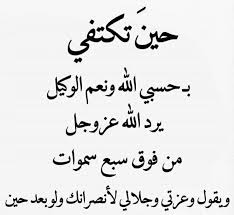 حينَ تكتفي
بـ حسبي الله ونعم الوكيل
يرد الله عزوجل
من فوق سبع سموات
ويقول وعزتي وجلالي لأنصرانك ولوبعد حين